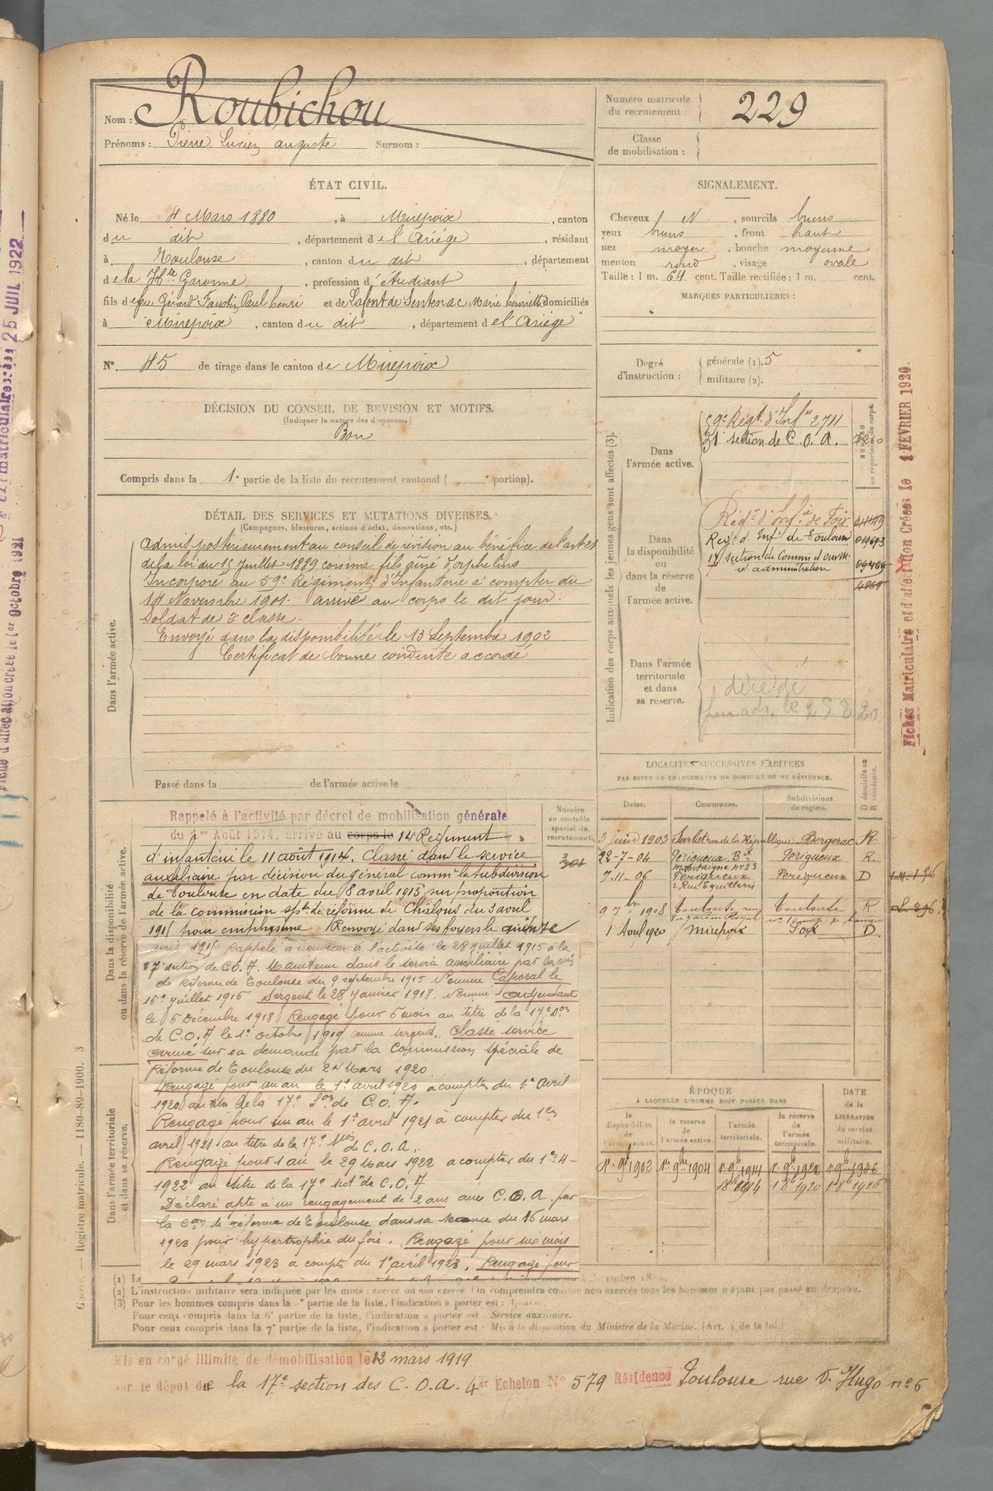 Nom : Roubichou
Prénoms : Pierre Lucien auguste Surnom :
Numéro matricule du recrutement : 229
Classe de mobilisation :
ÉTAT CIVIL.
Né le 4 Mars 1880, à Mirepoix, canton
du dit, département de l'Ariége, résidant
à Toulouse, canton du dit, département
de la Hte Garonne, profession d'étudiant
fils de feu Gérard Faustin Paul henri et de Lafont de Sentenac Marie henriette domiciliés
à Mirepoix, canton du dit, département de l'Ariége
N° 45 de tirage dans le canton de Mirepoix
SIGNALEMENT.
Cheveux N, sourcils bruns
yeux bruns, front haut
nez moyen, bouche moyenne
menton rond, visage ovale
Taille : 1 m. 64 cent. Taille rectifiée : 1 m. cent.
MARQUES PARTICULIÈRES :
Degré d'instruction : générale (1). 5
militaire (2).
DÉCISION DU CONSEIL DE REVISION ET MOTIFS.
(Indiquer la nature des dispenses.)
Bon
Compris dans la 1e partie de la liste du recrutement cantonal ( portion).
DÉTAIL DES SERVICES ET MUTATIONS DIVERSES.
(Campagnes, blessures, actions d'éclat, décorations, etc.)
Dans l'armée active.
Admis postérieurement au conseil de révision au bénéfice de l'art
de la loi du 15 juillet 1889 comme fils ainé d'orphelins
Incorporé au 59e Régiment d'Infanterie à compter du
14 Novembre 1901. arrivé au corps le dit jour.
Soldat de 2e classe.
Envoyé dans la disponibilité le 13 Septembre 1902
Certificat de bonne conduite accordé
Passé dans la de l'armée active le
Indication des corps auxquels les jeunes gens sont affectés (3).
Dans l'armée active.
59e Régt d'Infie 2711
31e section de C. O. A.
Dans la disponibilité ou dans la réserve de l'armée active.
Régt d'Infie de Foix
Regt d'Infie de Toulouse
17 section de Commis et ouvrs
d'administration
Dans l'armée territoriale et dans sa reserve.
décédé
LOCALITÉS SUCCESSIVES HABITÉES
PAR SUITE DE CHANGEMENTS DE DOMICILE OU DE RÉSIDENCE.
Dates. Communes. Subdivisions de région.
3 juin 1903 Sarlat rue de la République Bergerac R
22-7-04 Périgueux Bd Montaigne n° 23 Périgueux R.
7.11.06 Périgueux Périgueux D
9 7bre 1908 Toulouse Toulouse R
1 Avril 1920 Mirepoix Foix D.
Dans la disponibilité ou dans la réserve de l'armée active.
Rappelé à l'activité par décret de mobilisation générale
du 1er Août 1914, arrivé au corps le 14 Régiment
d'infanterie le 11 août 1914. Classé dans le service
auxiliaire par décision du général commt la subdivision
de Toulouse en date du 8 avril 1915 sur proposition
de la commission sple de réforme de Châlons du 3 avril
1915 pour emphysème. Renvoyé dans ses foyers le
Rappelé à nouveau à l'activité le 28 juillet 1915 à la
17 section de C.O.A. Maintenu dans le service auxiliaire par
de Réforme de Toulouse du 9 septembre 1915 Nommé Caporal le
15 juillet 1916 Sergent le 28 janvier 1918. Nommé adjudant
le 6 Décembre 1918 Rengagé pour 6 mois au titre de la 17e Son
de C.O.A le 1er octobre 1919 comme sergent. Classé service
armé sur sa demande par la Commission spéciale de
Réforme de Toulouse du 24 Mars 1920.
Rengagé pour un an le 1er avril 1920 à compter du 1er avril
1920 au titre de la 17e Son de C.O.A.
Rengagé pour un an le 1er avril 1921 à compter du 1er
avril 1921 au titre de la 17e Son de C.O.A.
Rengagé pour 1 an le 29 Mars 1922 à compter du 1er-4-
1922 au titre de la 17e Son de C.O.A
Déclaré apte à un rengagement de 2 ans au C.O.A. par
la Com de réforme de Toulouse dans sa séance du 16 mars
1923 pour hypertrophie du foie. Rengagé pour six mois
le 29 mars 1923 à compter du 1er avril 1923. Rengagé pour
Numéro au contrôle spécial du recrutement.
Dans l'armée territoriale et dans sa réserve.
ÉPOQUE
À LAQUELLE L'HOMME DOIT PASSER DANS
la disponibilité de l'armée active. la reserve de l'armée active. l'armée territoriale. la réserve de l'armée territoriale. DATE de la LIBÉRATION du service militaire.
1r 9bre 1902 1r 9bre 1904
(2) L'instruction militaire sera indiquée par les mots : exercé ou non exercé. On comprendra comme non exercés tous les hommes n'ayant pas passé au drapeau.
Pour les hommes compris dans la 1e partie de la liste, l'indication à porter est :
Pour ceux compris dans la 6e partie de la liste, l'indication à porter est : Service auxiliaire.
Pour ceux compris dans la 7e partie de la liste, l'indication à porter est : Mis à la disposition du Ministre de la Marine. (Art. 4 de la loi.)
Mis en congé illimité de démobilisation le 12 mars 1919
par le dépôt de la 17e section des C. O. A. 4er Echelon N° 579 Résidence Toulouse rue V. Hugo n° 6
Registre matricule. — 1180-89-1900. 3
Fiches Matriculaire et d'affectation Créées le 4 FÉVRIER 1920
25 JUIL 1922